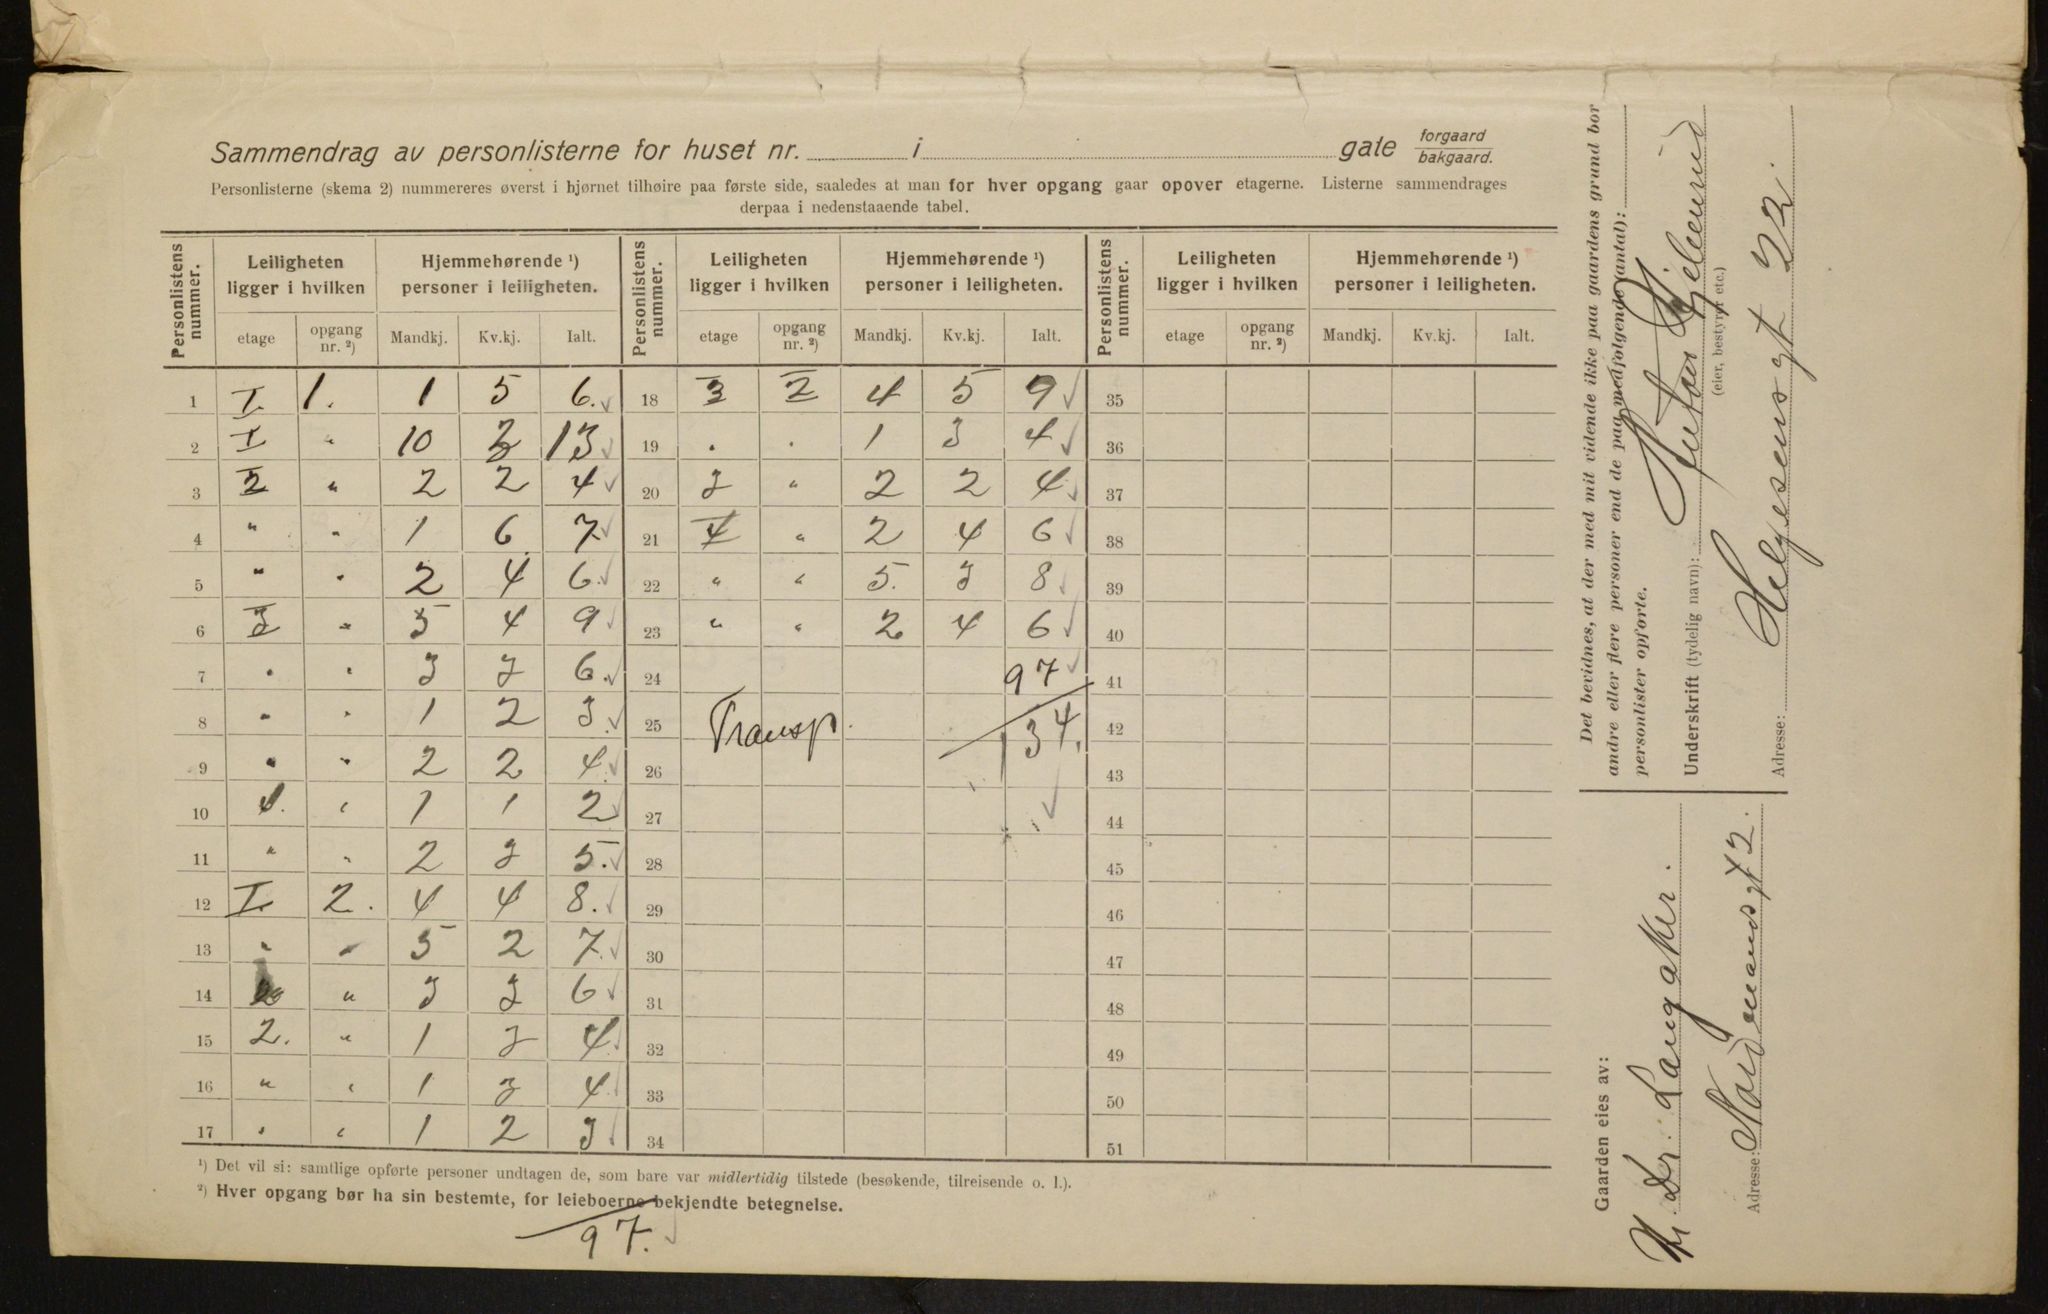 Sammendrag av personlisterne for huset nr. i gate forgaard bakgaard.
Personlisterne (skema 2) nummereres øverst i hjørnet tilhøire paa første side, saaledes at man for hver opgang gaar opover etagerne. Listerne sammendrages
derpaa i nedenstaaende tabel.
Personlistens nummer. Leiligheten ligger i hvilken Hjemmehørende ¹) personer i leiligheten. Personlistens nummer. Leiligheten ligger i hvilken Hjemmehørende ¹) personer i leiligheten. Personlistens nummer. Leiligheten ligger i hvilken Hjemmehørende ¹) personer i leiligheten.
etage opgang nr. ²) Mandkj. Kv.kj. Ialt. etage opgang nr. ²) Mandkj. Kv.kj. Ialt. etage opgang nr. ²) Mandkj. Kv.kj. Ialt.
1 I. 1. 1 5 6. 18 3 2 4 5 9 35
2 I " 10 3 13 19 . . 1 3 4 36
3 2 " 2 2 4 20 3 " 2 2 4 37
4 " " 1 6 7. 21 4 " 2 4 6 38
5 " " 2 4 6. 22 " " 5. 3 8 39
6 3 " 5 4 9 23 " " 2 4 6 40
7 " " 3 3 6. 24 97 41
8 " " 1 2 3. 25 Transp. 134. 42
9 " " 2 2 4. 26 43
10 4. " 1 1 2 27 44
11 " " 2 3 5. 28 45
12 I. 2. 4 4 8. 29 46
13 " " 5 2 7. 30 47
14 " 3 3 6 31 48
15 2. " 1 3 4. 32 49
16 " " 1 3 4 33 50
17 " " 1 2 3. 34 51
¹) Det vil si: samtlige opførte personer undtagen de, som bare var midlertidig tilstede (besøkende, tilreisende o. l.).
²) Hver opgang bør ha sin bestemte, for leieboerne bekjendte betegnelse.
97.
Det bevidnes, at der med mit vidende ikke paa gaardens grund bor
andre eller flere personer end de paa medfølgende (antal):
personlister opførte.
Underskrift (tydelig navn): Anton Gjelnerud
(eier, bestyrer etc.)
Adresse: Helgesensgt 22.
Gaarden eies av:
Langaker.
Adresse: Nordmannsgt 2.